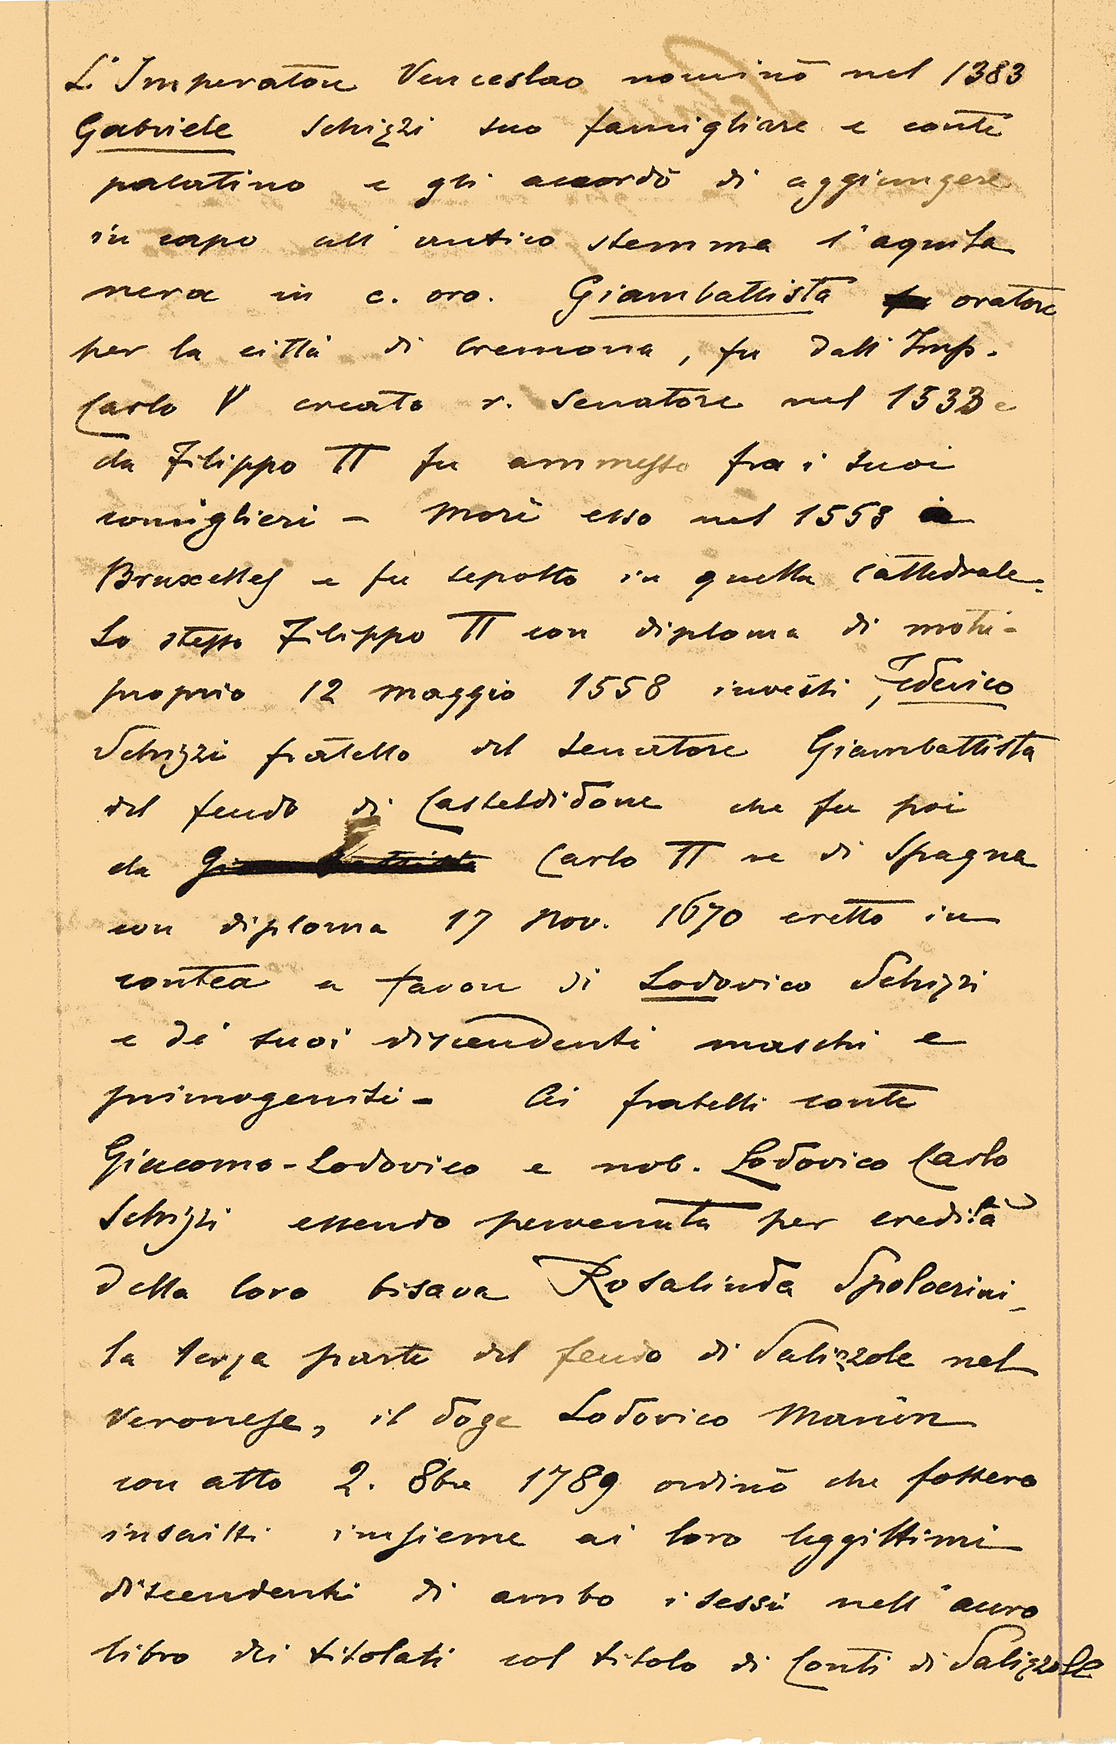 L'Imperatore Venceslao nominò nel 1383
Gabriele Schizzi suo famigliare e conte
palatino e gli accordò di aggiungere
in capo all'antico stemma l'aquila
nera in c. oro. Giambattista fu oratore
per la città di Cremona, fu dall'Imp.
Carlo V creato r. Senatore nel 1533 e
da Filippo II fu ammesso fra i suoi
consiglieri - Morì esso nel 1558 a
Bruxelles e fu sepolto in quella Cattedrale.
Lo stesso Filippo II con diploma di motu-
proprio 12 maggio 1558 investì Federico
Schizzi fratello del senatore Giambattista
del feudo di Casteldidone che fu poi
da Giambattista Carlo II re di Spagna
con diploma 17 Nov. 1670 eretto in
contea a favore di Lodovico Schizzi
e de' suoi discendenti maschi e
primogeniti - Ai fratelli conte
Giacomo-Lodovico e nob. Lodovico Carlo
Schizzi essendo pervenuta per eredità
della loro bisava Rosalinda Spolverini
la terza parte del feudo di Salizzole nel
Veronese, il doge Lodovico Manin
con atto 2. 8bre 1789 ordinò che fossero
inscritti insieme ai loro leggittimi
discendenti di ambo i sessi nell'aureo
libro dei titolati col titolo di Conti di Salizzole